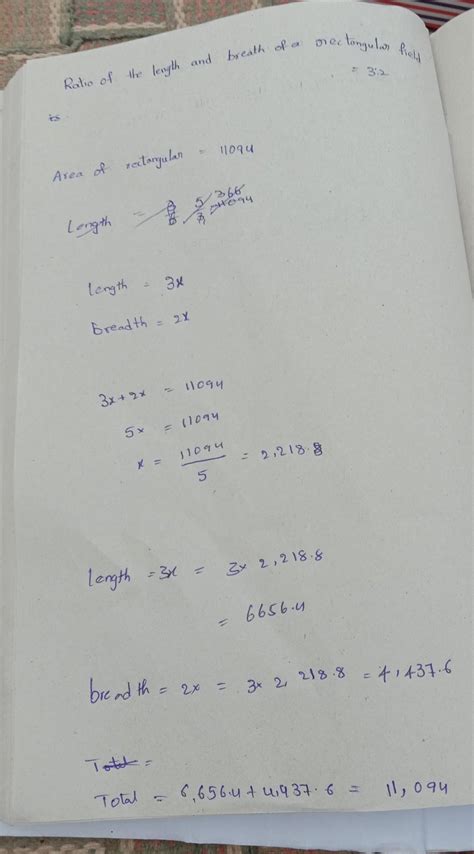 Ratio of the length and breath of a rectangular field
is = 3:2
Area of rectangular = 11094
Length =
length = 3x
breadth = 2x
3x + 2x = 11094
5x = 11094
x = 11094 / 5 = 2,218.8
length = 3x = 3x 2,218.8
= 6656.4
breadth = 2x = 3x 2,218.8 = 4,437.6
Total =
Total = 6,656.4 + 4,437.6 = 11,094